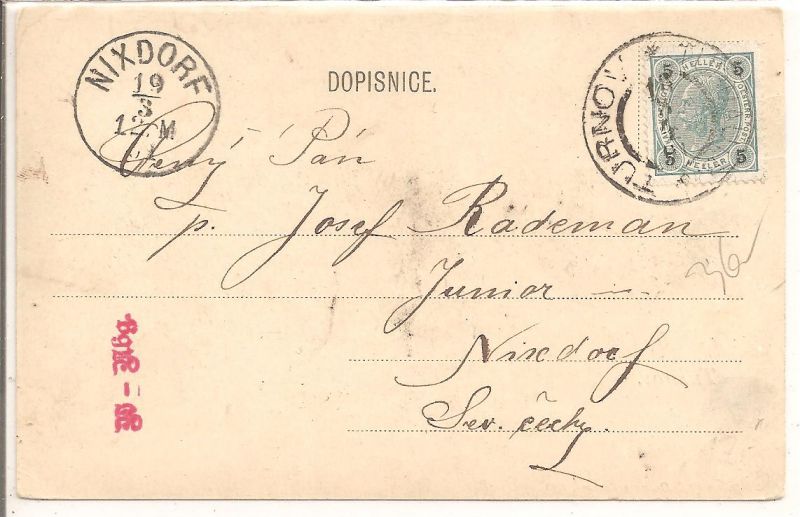 NIXDORF
19
3
12 M
DOPISNICE.
TURNOV
5 5
HELLER
5 5
HELLER
Ctený Pán
p. Josef Rademan
Junior —
Nixdorf
Sev. čechy